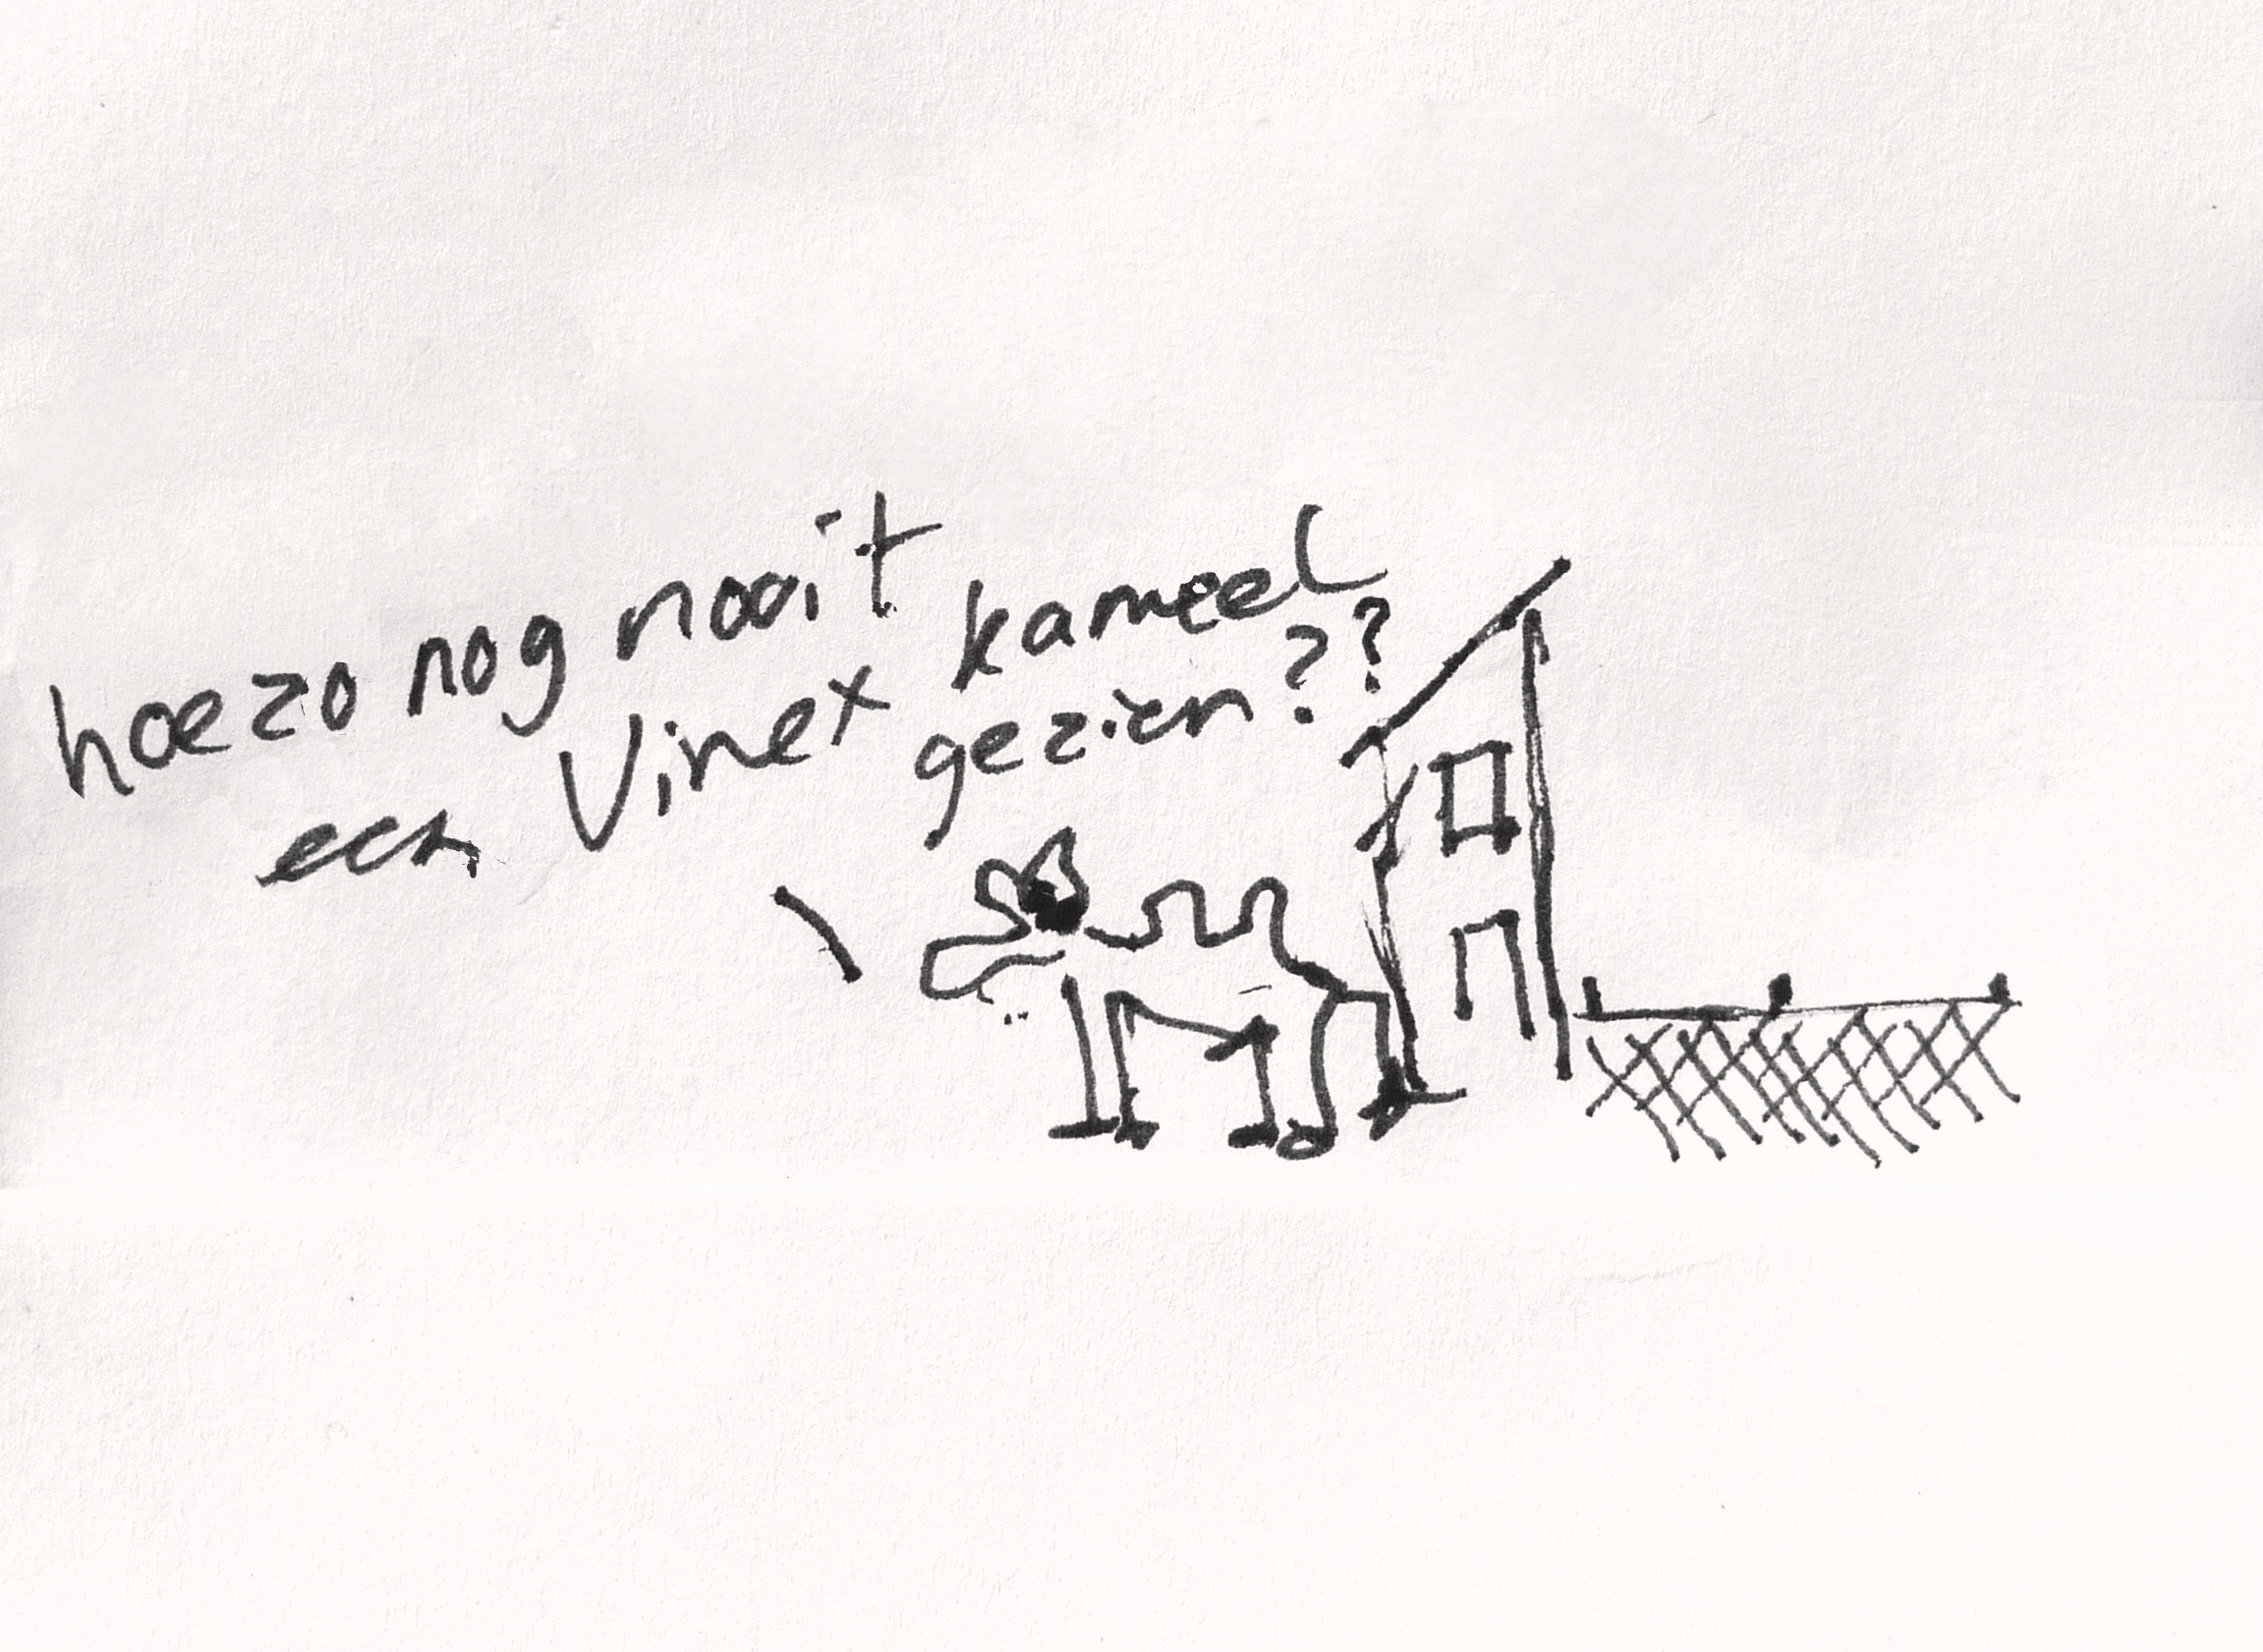 hoezo nog nooit
een Vinex kameel
gezien??